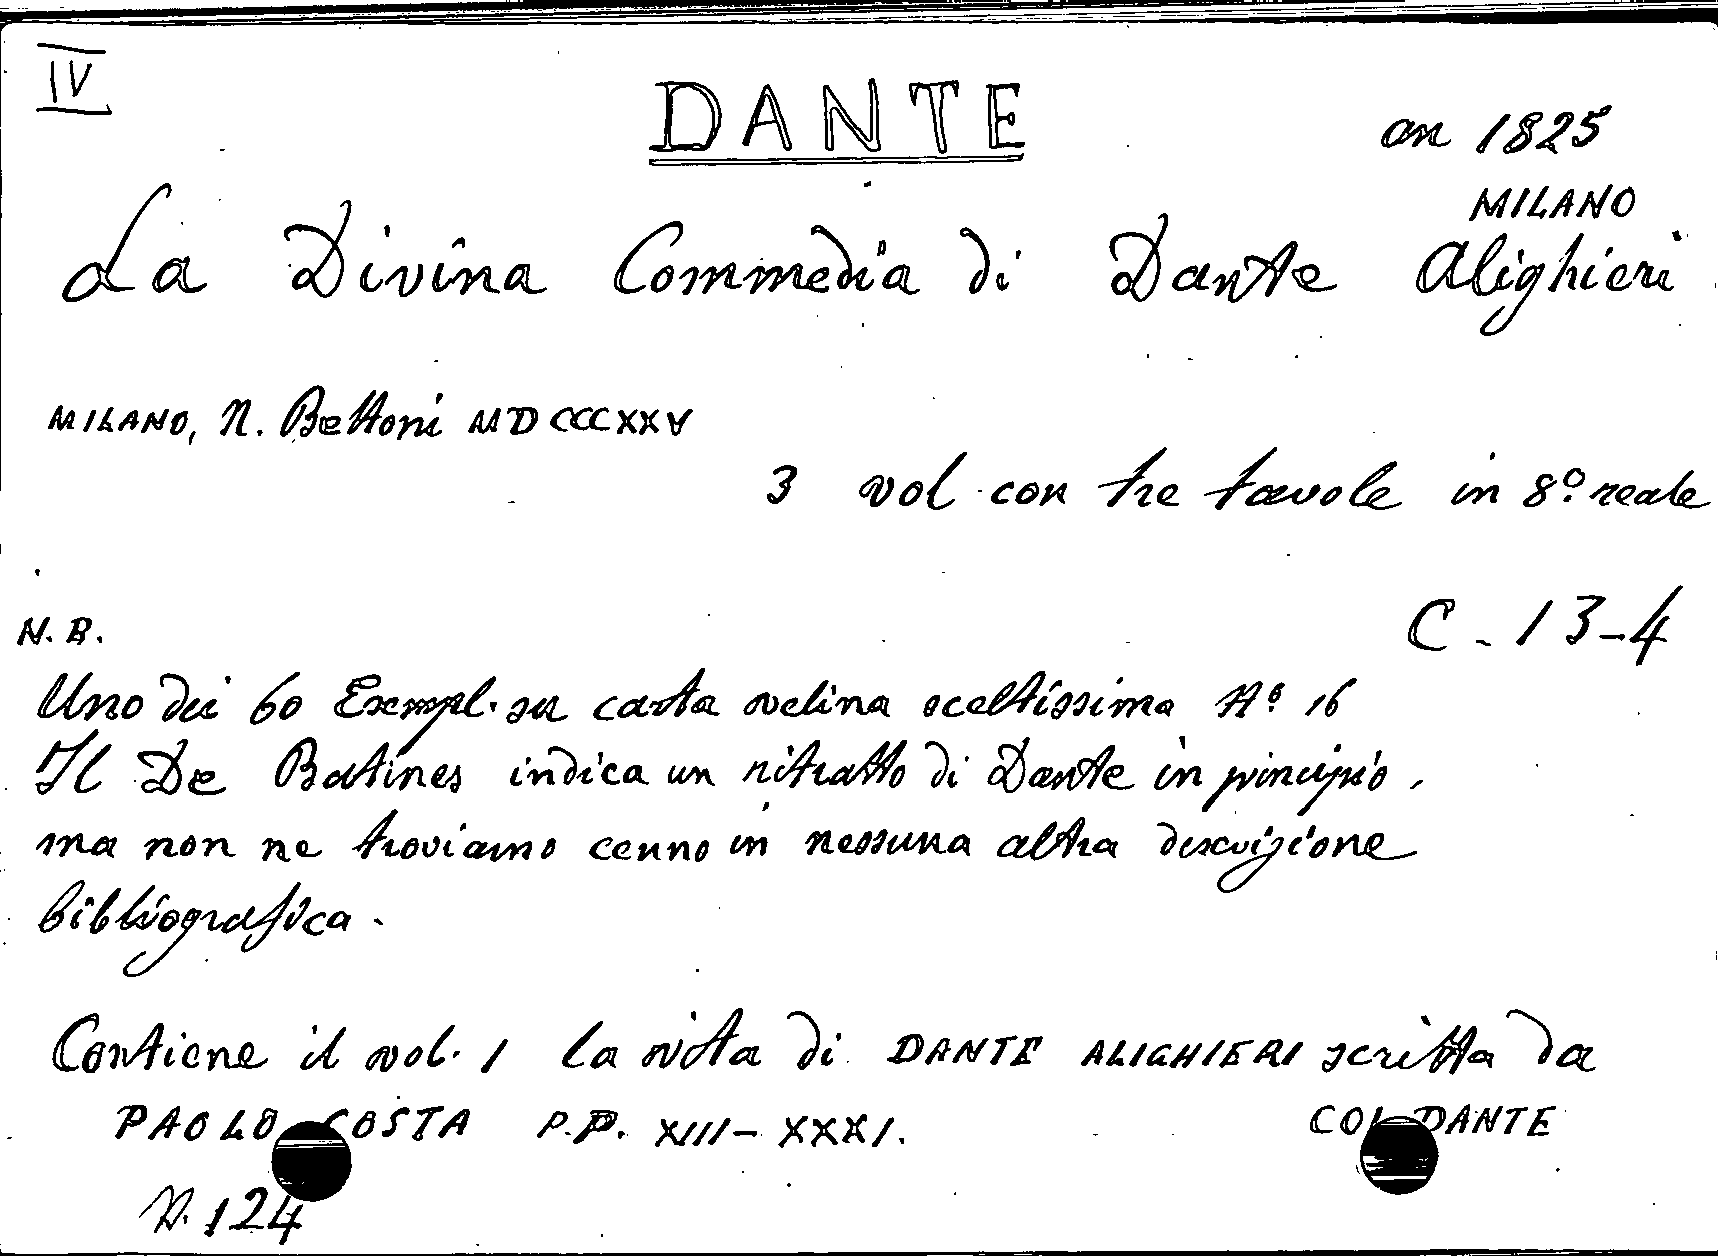 IV
DANTE
an 1825
MILANO
La Divina Commedia di Dante Alighieri
MILANO, N. Bettoni MDCCCXXV
3 vol. con tre tavole in 8º reale
N.B.
C - 13-4
Uno dei 60 Exempl. su carta velina sceltissima Nº 16
Il De Batines indica un ritratto di Dante in principio,
ma non ne troviamo cenno in nessuna altra descrizione
bibliografica.
Contiene il vol. 1 la vita di DANTE ALIGHIERI scritta da
PAOLO COSTA P.P. XIII - XXXI.
COL DANTE
N. 124